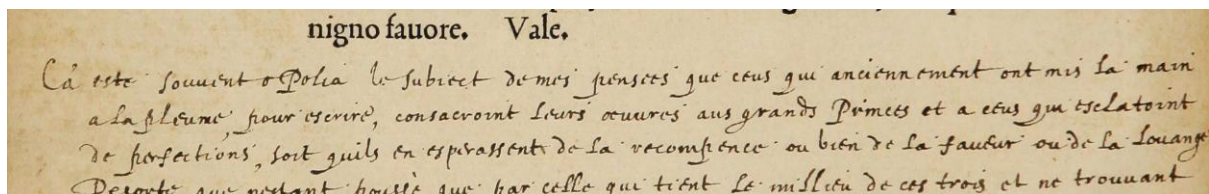 nigno fauore. Vale.
Ca este souuent o Polia le subiect de mes pensees que ceus qui anciennement ont mis la main
a la pleume, pour escrire, consacroint leurs œuures aus grands Princes et a ceus qui esclatoint
de perfections, soit quils en esperassent de la recompence ou bien de la faueur ou de la louange
Desorte que nestant poussè que par celle qui tient le millieu de ces trois et ne trouuant